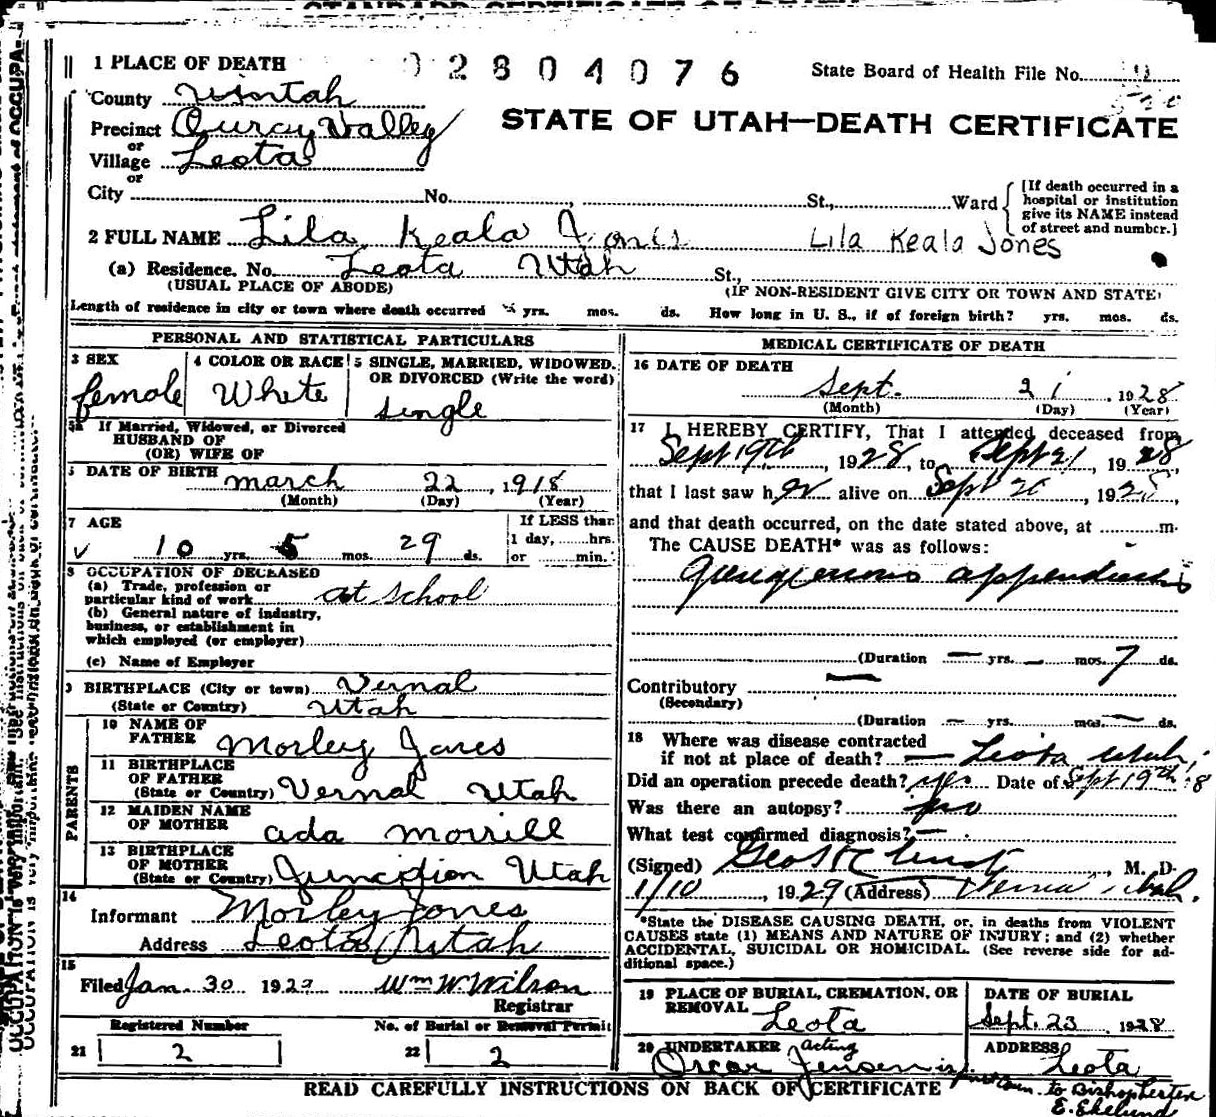 1 PLACE OF DEATH 02804076 State Board of Health File No.
County Uintah
Precinct Ouray Valley STATE OF UTAH—DEATH CERTIFICATE
or
Village Leota
or
City No. St., Ward [If death occurred in a hospital or institution give its NAME instead of street and number.]
2 FULL NAME Lila Keala Jones Lila Keala Jones
(a) Residence. No. Leota Utah St.,
(USUAL PLACE OF ABODE) (IF NON-RESIDENT GIVE CITY OR TOWN AND STATE)
Length of residence in city or town where death occurred yrs. mos. ds. How long in U. S., if of foreign birth? yrs. mos. ds.
PERSONAL AND STATISTICAL PARTICULARS
3 SEX
female
4 COLOR OR RACE
White
5 SINGLE, MARRIED, WIDOWED.
OR DIVORCED (Write the word)
single
5a If Married, Widowed, or Divorced
HUSBAND OF
(OR) WIFE OF
DATE OF BIRTH march 22, 1918
(Month) (Day) (Year)
7 AGE
10 yrs. 5 mos. 29 ds.
If LESS than
1 day, hrs.
or min.
8 OCCUPATION OF DECEASED
(a) Trade, profession or
particular kind of work at school
(b) General nature of industry,
business, or establishment in
which employed (or employer)
(c) Name of Employer
9 BIRTHPLACE (City or town) Vernal
(State or Country) Utah
PARENTS
10 NAME OF
FATHER Morley Jones
11 BIRTHPLACE
OF FATHER
(State or Country) Vernal Utah
12 MAIDEN NAME
OF MOTHER ada morrill
13 BIRTHPLACE
OF MOTHER
(State or Country) Junction Utah
14
Informant Morley Jones
Address Leota Utah
15
Filed Jan. 30 1929 Wm W Wilson
Registrar
Registered Number No. of Burial or Removal Permit
21 2 22 2
MEDICAL CERTIFICATE OF DEATH
16 DATE OF DEATH
Sept. 21, 1928
(Month) (Day) (Year)
17 I HEREBY CERTIFY, That I attended deceased from
Sept 19th, 1928, to Sept 21, 1928
that I last saw her alive on Sept 20, 1928,
and that death occurred, on the date stated above, at m.
The CAUSE DEATH* was as follows:
gangrenous appendicitis
(Duration — yrs. — mos. 7 ds.
Contributory —
(Secondary)
(Duration — yrs. mos. — ds.
18 Where was disease contracted
if not at place of death? — Leota Utah
Did an operation precede death? yes Date of Sept 19th 28
Was there an autopsy? no
What test confirmed diagnosis? —
(Signed) M. D.
1/10, 1929 (Address) Vernal Utah.
*State the DISEASE CAUSING DEATH, or, in deaths from VIOLENT
CAUSES state (1) MEANS AND NATURE OF INJURY; and (2) whether
ACCIDENTAL, SUICIDAL OR HOMICIDAL. (See reverse side for ad-
ditional space.)
19 PLACE OF BURIAL, CREMATION, OR
REMOVAL Leota
DATE OF BURIAL
Sept. 23, 1928
20 UNDERTAKER acting
Oscar Jensen
ADDRESS
Leota
to Bishop Lester
E. Ekelund
READ CAREFULLY INSTRUCTIONS ON BACK OF CERTIFICATE